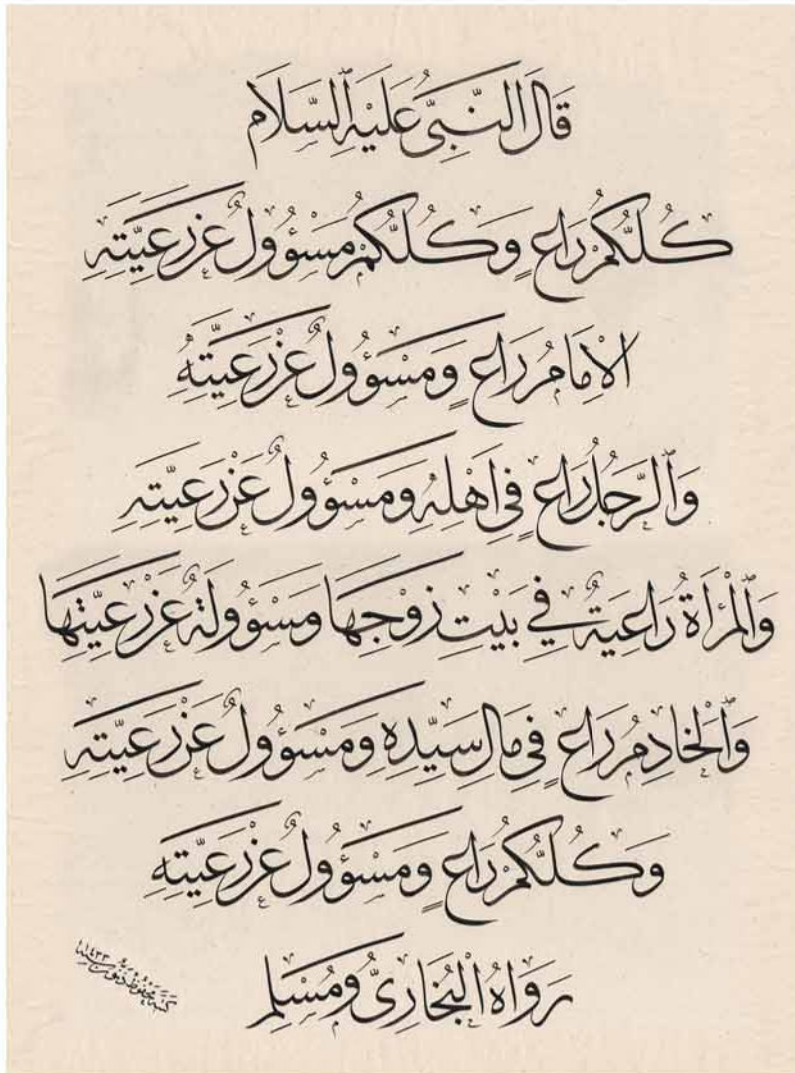 قَالَ النَّبِيُّ عَلَيْهِ السَّلَام
كُلُّكُمْ رَاعٍ وَكُلُّكُمْ مَسْؤُولٌ عَنْ رَعِيَّتِهِ
الْاِمَامُ رَاعٍ وَمَسْؤُولٌ عَنْ رَعِيَّتِهِ
وَالرَّجُلُ رَاعٍ فِي اَهْلِهِ وَمَسْؤُولٌ عَنْ رَعِيَّتِهِ
وَالْمَرْاَةُ رَاعِيَةٌ فِي بَيْتِ زَوْجِهَا وَمَسْؤُولَةٌ عَنْ رَعِيَّتِهَا
وَالْخَادِمُ رَاعٍ فِي مَالِ سَيِّدِهِ وَمَسْؤُولٌ عَنْ رَعِيَّتِهِ
وَكُلُّكُمْ رَاعٍ وَمَسْؤُولٌ عَنْ رَعِيَّتِهِ
رَوَاهُ الْبُخَارِيُّ وَمُسْلِم
كتبه محفوظ ذنون سنة ١٤٣٣